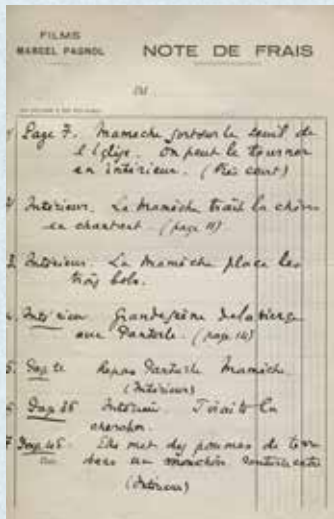 FILMS
MARCEL PAGNOL
NOTE DE FRAIS
DU
1/ Page 7. Mamèche sort sur le seuil de
l'Eglise. On peut le tourner
en intérieur. (Très court)
2/ Intérieur. La Mamèche trait la chèvre
en chantant. (page 11)
3/ Intérieur. La Mamèche place les
trois bols.
4. Intérieur. Grande scène de la vierge
avec Panturle. (page 14)
5. Page Repas Panturle Mamèche
(Intérieur)
6 Page 36 Intérieur. la
chercher
7 Page 46. Elle met des pommes de terre
dans un mouchoir
(Intérieur)